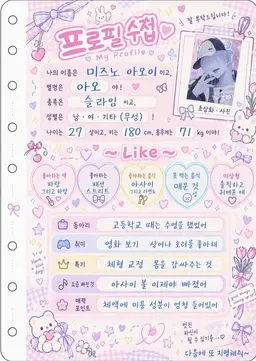 잘 부탁드립니다!
프로필 수첩
My Profile
나의 이름은 미즈노 아오이 이고,
별명은 아오 야!
종족은 슬라임 이고,
성별은 남 · 여 · 기타 (무성) !
나이는 27 살이고, 키는 180 cm, 몸무게는 71 kg 이야!
초상화 · 사진
~ Like ~
좋아하는 색
파랑
그리고 하양
좋아하는
패션
스트리트
좋아하는 음식
아사이
그리고 라멘
못 먹는 음식
매운 것
이상형
솔직하고
귀여운 애
동아리
고등학교 때는 수영을 했었어
취미
영화 보기 상어나 호러를 좋아해
특기
체형 교정 몸을 감싸주는 것
요즘 빠진 것
아사이 볼 이제야 빠졌어
매력 포인트
체액에 미용 성분이 엄청 들어있어
멋진
자신이
될 수 있기를
다음에 또 지명해줘~